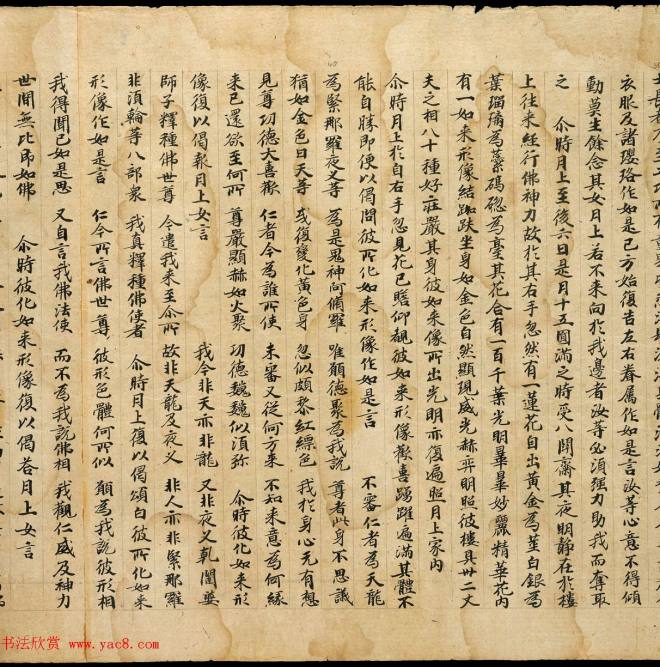 衣服及諸瓔珞作如是已方始復告左右眷屬作如是言汝等心意不得傾
動莫生餘念其女月上若不来向於我邊者汝等必須強力助我而奪取
之 尒時月上至後六日是月十五圓滿之時受八關齋其夜明静在於樓
上往来経行佛神力故於其右手忽然有一蓮花自出黃金為莖白銀為
葉瑠璃為蘂碼碯為臺其花合有一百千葉光明畢畢妙麗精華花内
有一如来形像結跏趺坐身如金色自然顯現威光赫弈明照彼樓具卅二丈
夫之相八十種好莊嚴其身彼如来像所出光明亦復遍照月上家内
尒時月上於自右手忽見花已瞻仰觀彼如来形像歡喜踊躍遍滿其體不
能自勝即便以偈問彼所化如来形像作如是言 不審仁者為天龍
為緊那羅夜叉等 為是鬼神阿脩羅 唯願德聚為我說 尊者此身不思議
猶如金色日天等 或復變化黃色身 忽似頗黎紅縹色 我於身心无有想
見尊功德大喜歡 仁者今為誰所使 未審又從何方来 不知来意為何緣
来已還欲至何所 尊嚴顯赫如火聚 功德巍巍似湏弥 尒時彼化如来形
像復以偈報月上女言 我今非天亦非龍 又非夜叉乹闥婆
師子釋種佛世尊 今遣我来至尒所 故非天龍及夜叉 非人亦非緊那羅
非湏輪等八部衆 我真釋種佛使者 尒時月上復以偈頌白彼所化如来
形像作如是言 仁今所言佛世尊 彼形色體何所似 願為我說彼形相
我得聞已如是思 又自言我佛法使 而不為我說佛相 我觀仁威及神力
世間無比即如佛 尒時彼化如来形像復以偈荅月上女言
书法欣赏 www.yac8.com